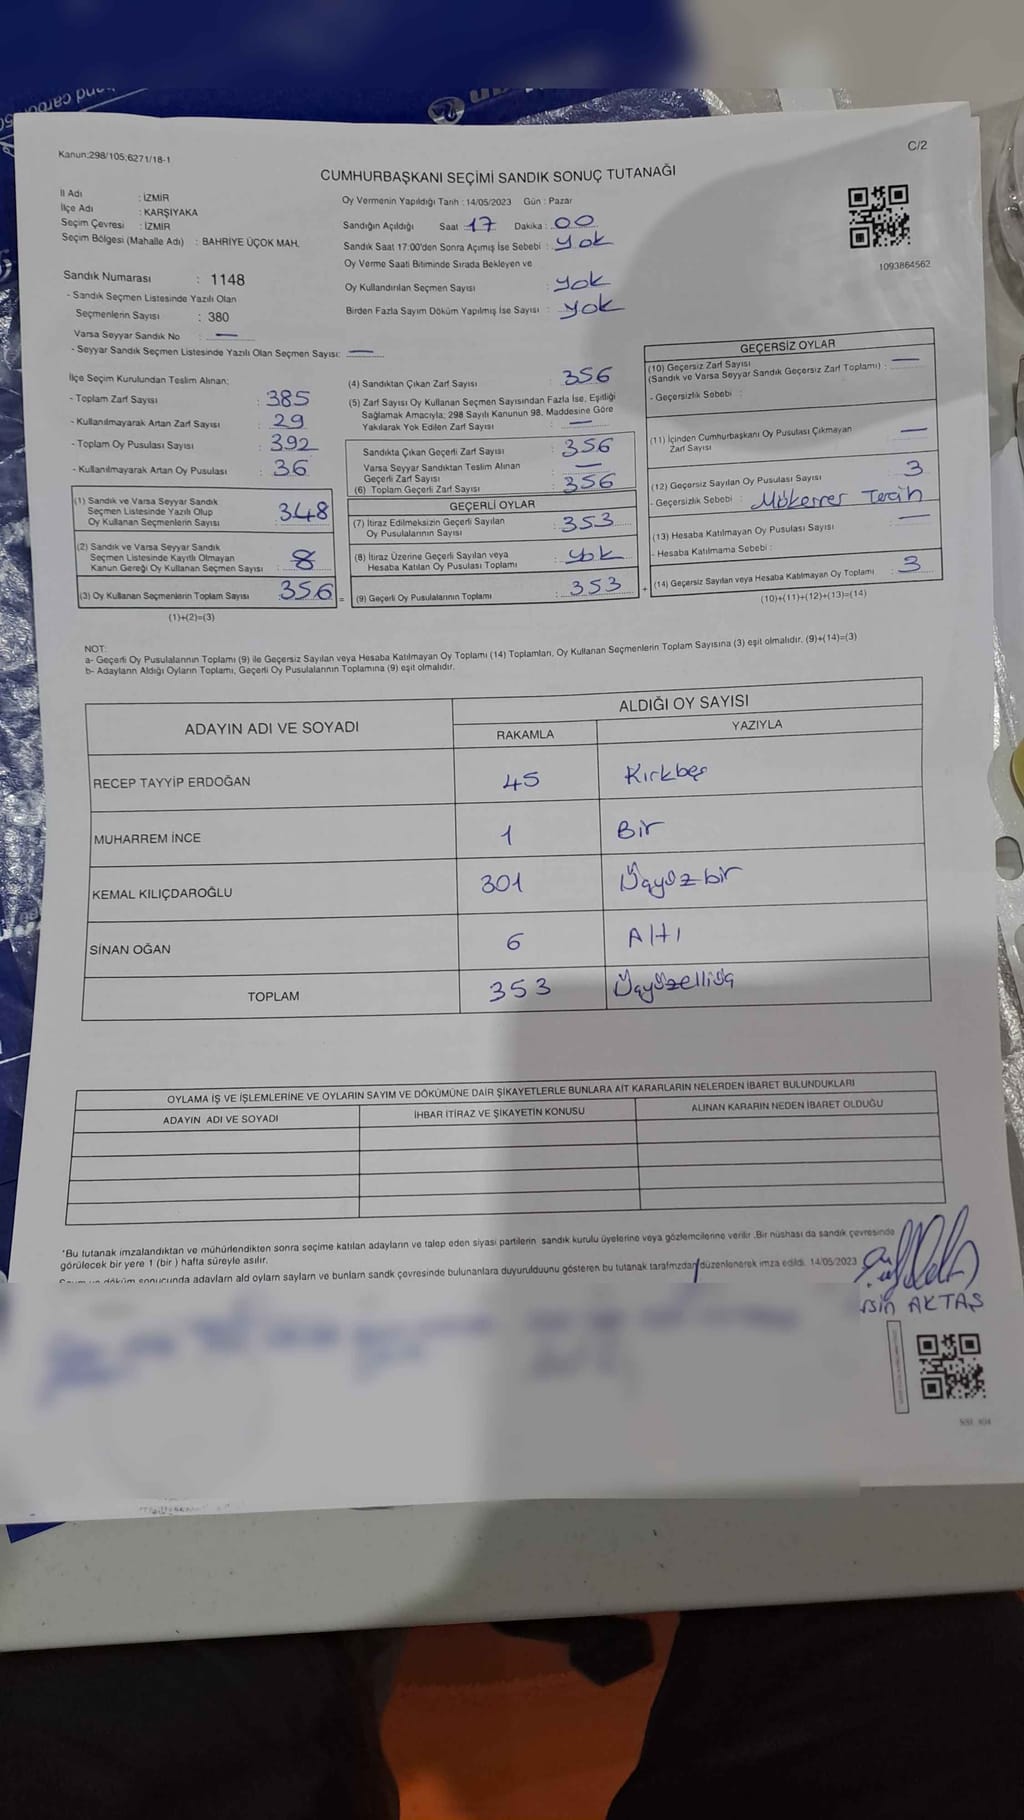 C/2
Kanun:298/105;6271/18-1
CUMHURBAŞKANI SEÇİMİ SANDIK SONUÇ TUTANAĞI
İl Adı : İZMİR
İlçe Adı : KARŞIYAKA
Seçim Çevresi : İZMİR
Seçim Bölgesi (Mahalle Adı) : BAHRİYE ÜÇOK MAH.
Oy Vermenin Yapıldığı Tarih : 14/05/2023 Gün : Pazar
Sandığın Açıldığı Saat : 17 Dakika : 00
Sandık Saat 17:00'den Sonra Açımış İse Sebebi : Yok
Oy Verme Saati Bitiminde Sırada Bekleyen ve
Oy Kullandırılan Seçmen Sayısı : Yok
Birden Fazla Sayım Döküm Yapılmış İse Sayısı : Yok
1093864562
Sandık Numarası : 1148
- Sandık Seçmen Listesinde Yazılı Olan
Seçmenlerin Sayısı : 380
Varsa Seyyar Sandık No : —
- Seyyar Sandık Seçmen Listesinde Yazılı Olan Seçmen Sayısı: —
İlçe Seçim Kurulundan Teslim Alınan;
- Toplam Zarf Sayısı : 385
- Kullanılmayarak Artan Zarf Sayısı : 29
- Toplam Oy Pusulası Sayısı : 392
- Kullanılmayarak Artan Oy Pusulası : 36
(1) Sandık ve Varsa Seyyar Sandık
Seçmen Listesinde Yazılı Olup
Oy Kullanan Seçmenlerin Sayısı : 348
(2) Sandık ve Varsa Seyyar Sandık
Seçmen Listesinde Kayıtlı Olmayan
Kanun Gereği Oy Kullanan Seçmen Sayısı : 8
(3) Oy Kullanan Seçmenlerin Toplam Sayısı : 356
(1)+(2)=(3)
(4) Sandıktan Çıkan Zarf Sayısı : 356
(5) Zarf Sayısı Oy Kullanan Seçmen Sayısından Fazla İse, Eşitliği
Sağlamak Amacıyla; 298 Sayılı Kanunun 98. Maddesine Göre
Yakılarak Yok Edilen Zarf Sayısı : —
Sandıkta Çıkan Geçerli Zarf Sayısı : 356
Varsa Seyyar Sandıktan Teslim Alınan
Geçerli Zarf Sayısı : —
(6) Toplam Geçerli Zarf Sayısı : 356
GEÇERLİ OYLAR
(7) İtiraz Edilmeksizin Geçerli Sayılan
Oy Pusulasının Sayısı : 353
(8) İtiraz Üzerine Geçerli Sayılan veya
Hesaba Katılan Oy Pusulası Toplamı : Yok
= (9) Geçerli Oy Pusulalarının Toplamı : 353
GEÇERSİZ OYLAR
(10) Geçersiz Zarf Sayısı
(Sandık ve Varsa Seyyar Sandık Geçersiz Zarf Toplamı) : —
- Geçersizlik Sebebi :
(11) İçinden Cumhurbaşkanı Oy Pusulası Çıkmayan
Zarf Sayısı : —
(12) Geçersiz Sayılan Oy Pusulası Sayısı : 3
- Geçersizlik Sebebi : Mükerrer Tercih
(13) Hesaba Katılmayan Oy Pusulası Sayısı : —
- Hesaba Katılmama Sebebi :
+ (14) Geçersiz Sayılan veya Hesaba Katılmayan Oy Toplamı : 3
(10)+(11)+(12)+(13)=(14)
NOT:
a- Geçerli Oy Pusulalarının Toplamı (9) ile Geçersiz Sayılan veya Hesaba Katılmayan Oy Toplamı (14) Toplamları, Oy Kullanan Seçmenlerin Toplam Sayısına (3) eşit olmalıdır. (9)+(14)=(3)
b- Adayların Aldığı Oyların Toplamı, Geçerli Oy Pusulalarının Toplamına (9) eşit olmalıdır.
ADAYIN ADI VE SOYADI
ALDIĞI OY SAYISI
RAKAMLA YAZIYLA
RECEP TAYYİP ERDOĞAN 45 Kırkbeş
MUHARREM İNCE 1 Bir
KEMAL KILIÇDAROĞLU 301 Üçyüzbir
SİNAN OĞAN 6 Altı
TOPLAM 353 Üçyüzelliüç
OYLAMA İŞ VE İŞLEMLERİNE VE OYLARIN SAYIM VE DÖKÜMÜNE DAİR ŞİKAYETLERLE BUNLARA AİT KARARLARIN NELERDEN İBARET BULUNDUKLARI
ADAYIN ADI VE SOYADI İHBAR İTİRAZ VE ŞİKAYETİN KONUSU ALINAN KARARIN NEDEN İBARET OLDUĞU
*Bu tutanak imzalandıktan ve mühürlendikten sonra seçime katılan adayların ve talep eden siyasi partilerin sandık kurulu üyelerine veya gözlemcilerine verilir .Bir nüshası da sandık çevresinde
görülecek bir yere 1 (bir ) hafta süreyle asılır.
döküm sonucunda adayların ald oyların sayların ve bunların sandk çevresinde bulunanlara duyurulduunu gösteren bu tutanak tarafmzdan düzenlenerek imza edildi. 14/05/2023
AKTAŞ